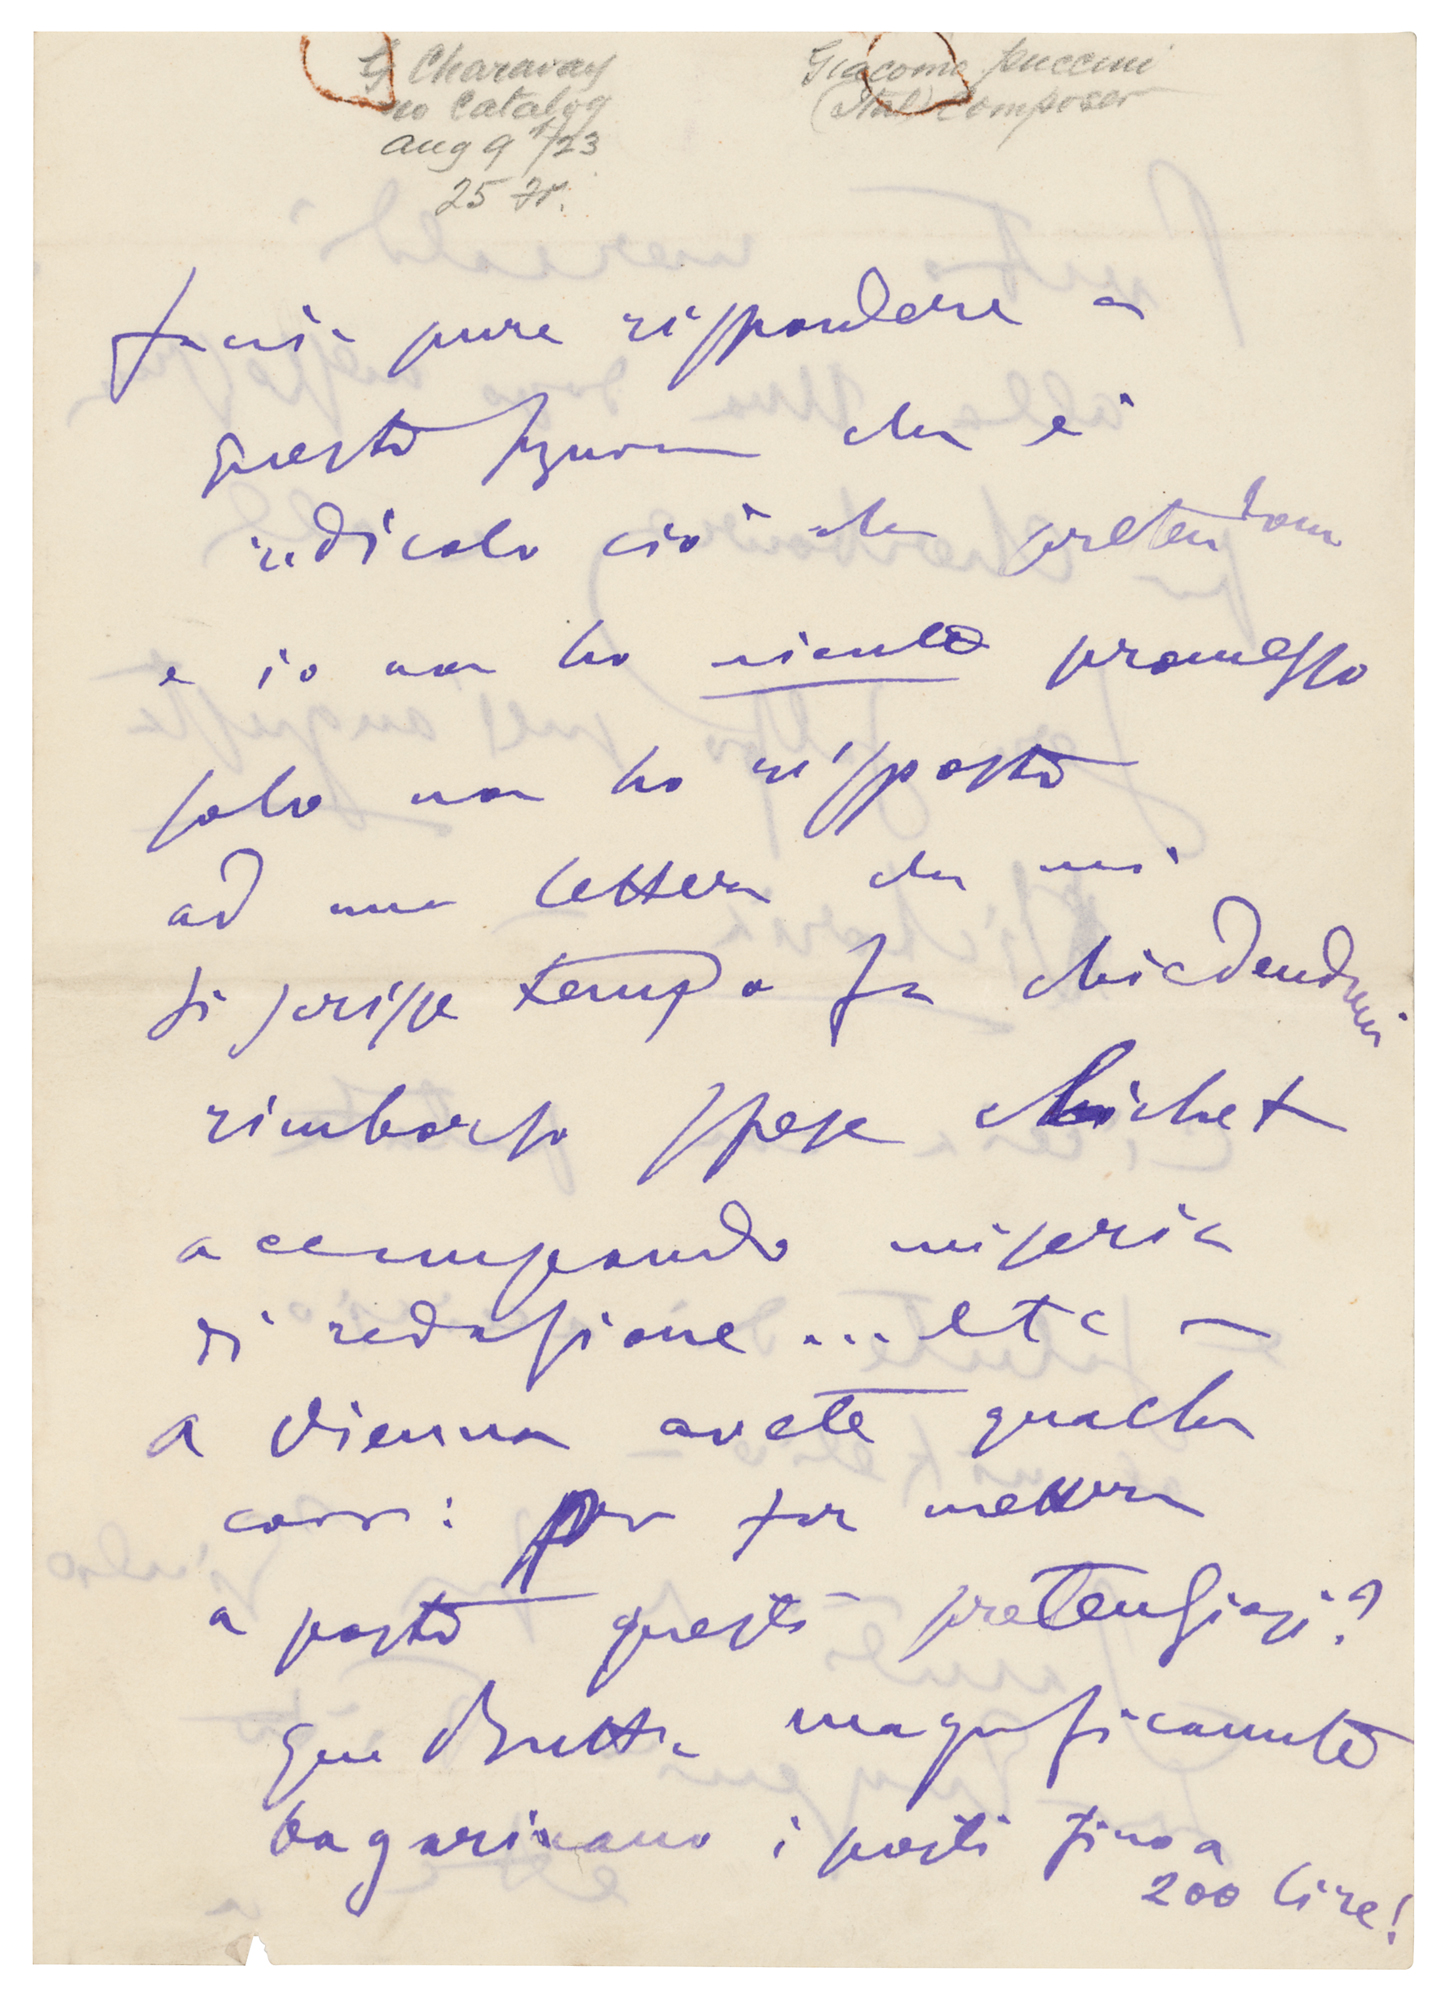 G Charavay
no Catalog
Aug 9th/23
25 Fr.
Giacomo Puccini
(Ital) Composer
Faccia pure rispondere a
questo signore che è
ridicolo ciò che pretendono
e io non ho niente promesso
solo non ho risposto
ad una lettera che mi
si scrisse tempo fa chiedendomi
rimborso spese
accampando miseria
di redazione ... etc —
A Vienna avete qualche
per far mettere
a posto questi pretenziosi?
Qui Butt magnificamente
bagarinano i posti fino a
200 lire!